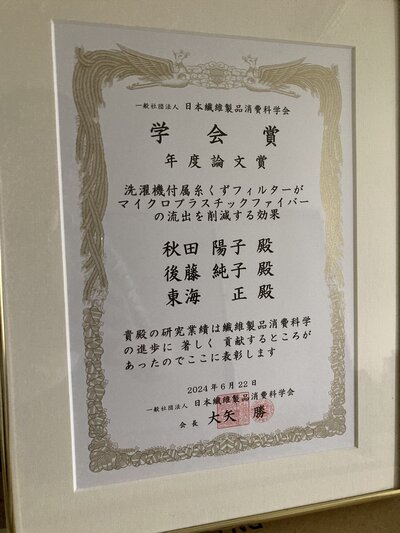 一般社団法人 日本繊維製品消費科学会
学会賞
年度論文賞
洗濯機付属糸くずフィルターが
マイクロプラスチックファイバー
の流出を削減する効果
秋田 陽子 殿
後藤 純子 殿
東海 正 殿
貴殿の研究業績は繊維製品消費科学
の進歩に 著しく 貢献するところが
あったのでここに表彰します
2024年6月22日
一般社団法人 日本繊維製品消費科学会
会長 大矢 勝